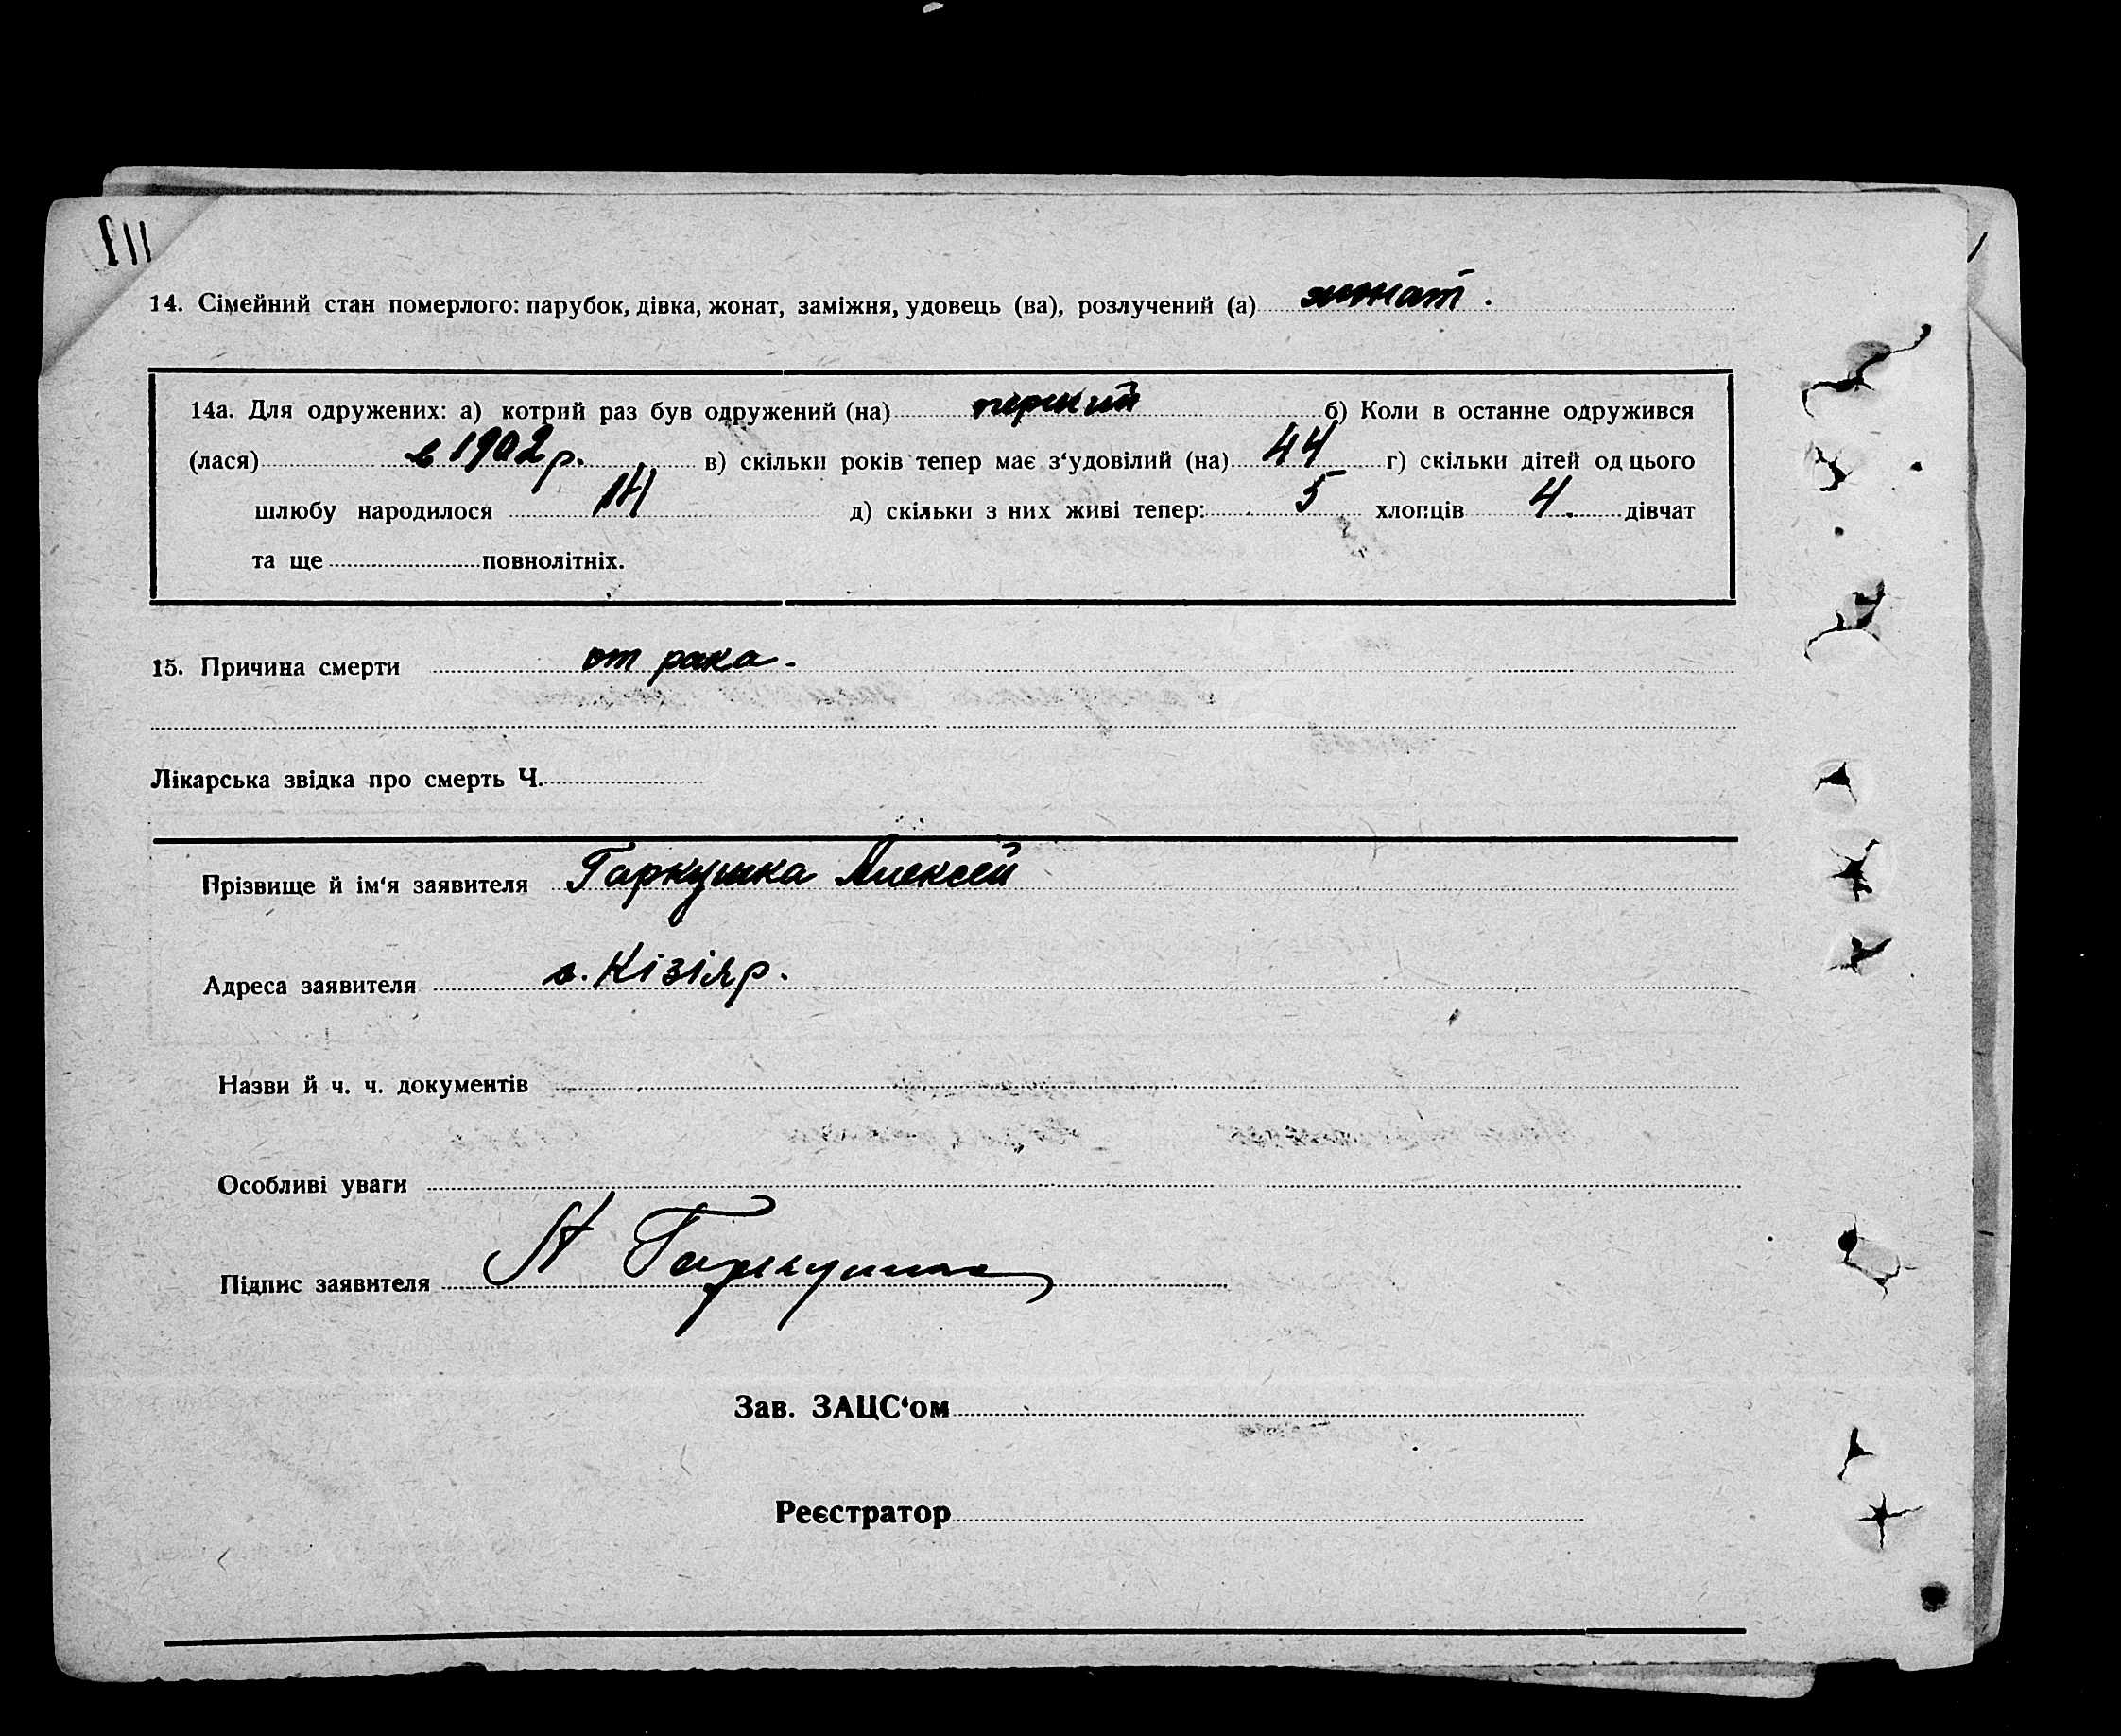 14. Сімейний стан померлого: парубок, дівка, жонат, заміжня, удовець (ва), розлучений (а) жонат.
14а. Для одружених: а) котрий раз був одружений (на) первий б) Коли в останне одружився
(лася) в 1902 р. в) скільки років тепер має з‘удовілий (на) 44 г) скільки дітей од цього
шлюбу народилося 14 д) скільки з них живі тепер: 5 хлопців 4. дівчат
та ще повнолітніх.
15. Причина смерти от рака.
Лікарська звідка про смерть Ч.
Прізвище й ім‘я заявителя Гаркушка Алексей
Адреса заявителя с. Кізіяр.
Назви й ч. ч. документів
Особливі уваги
Підпис заявителя А Гаркушка
Зав. ЗАЦС‘ом
Реєстратор